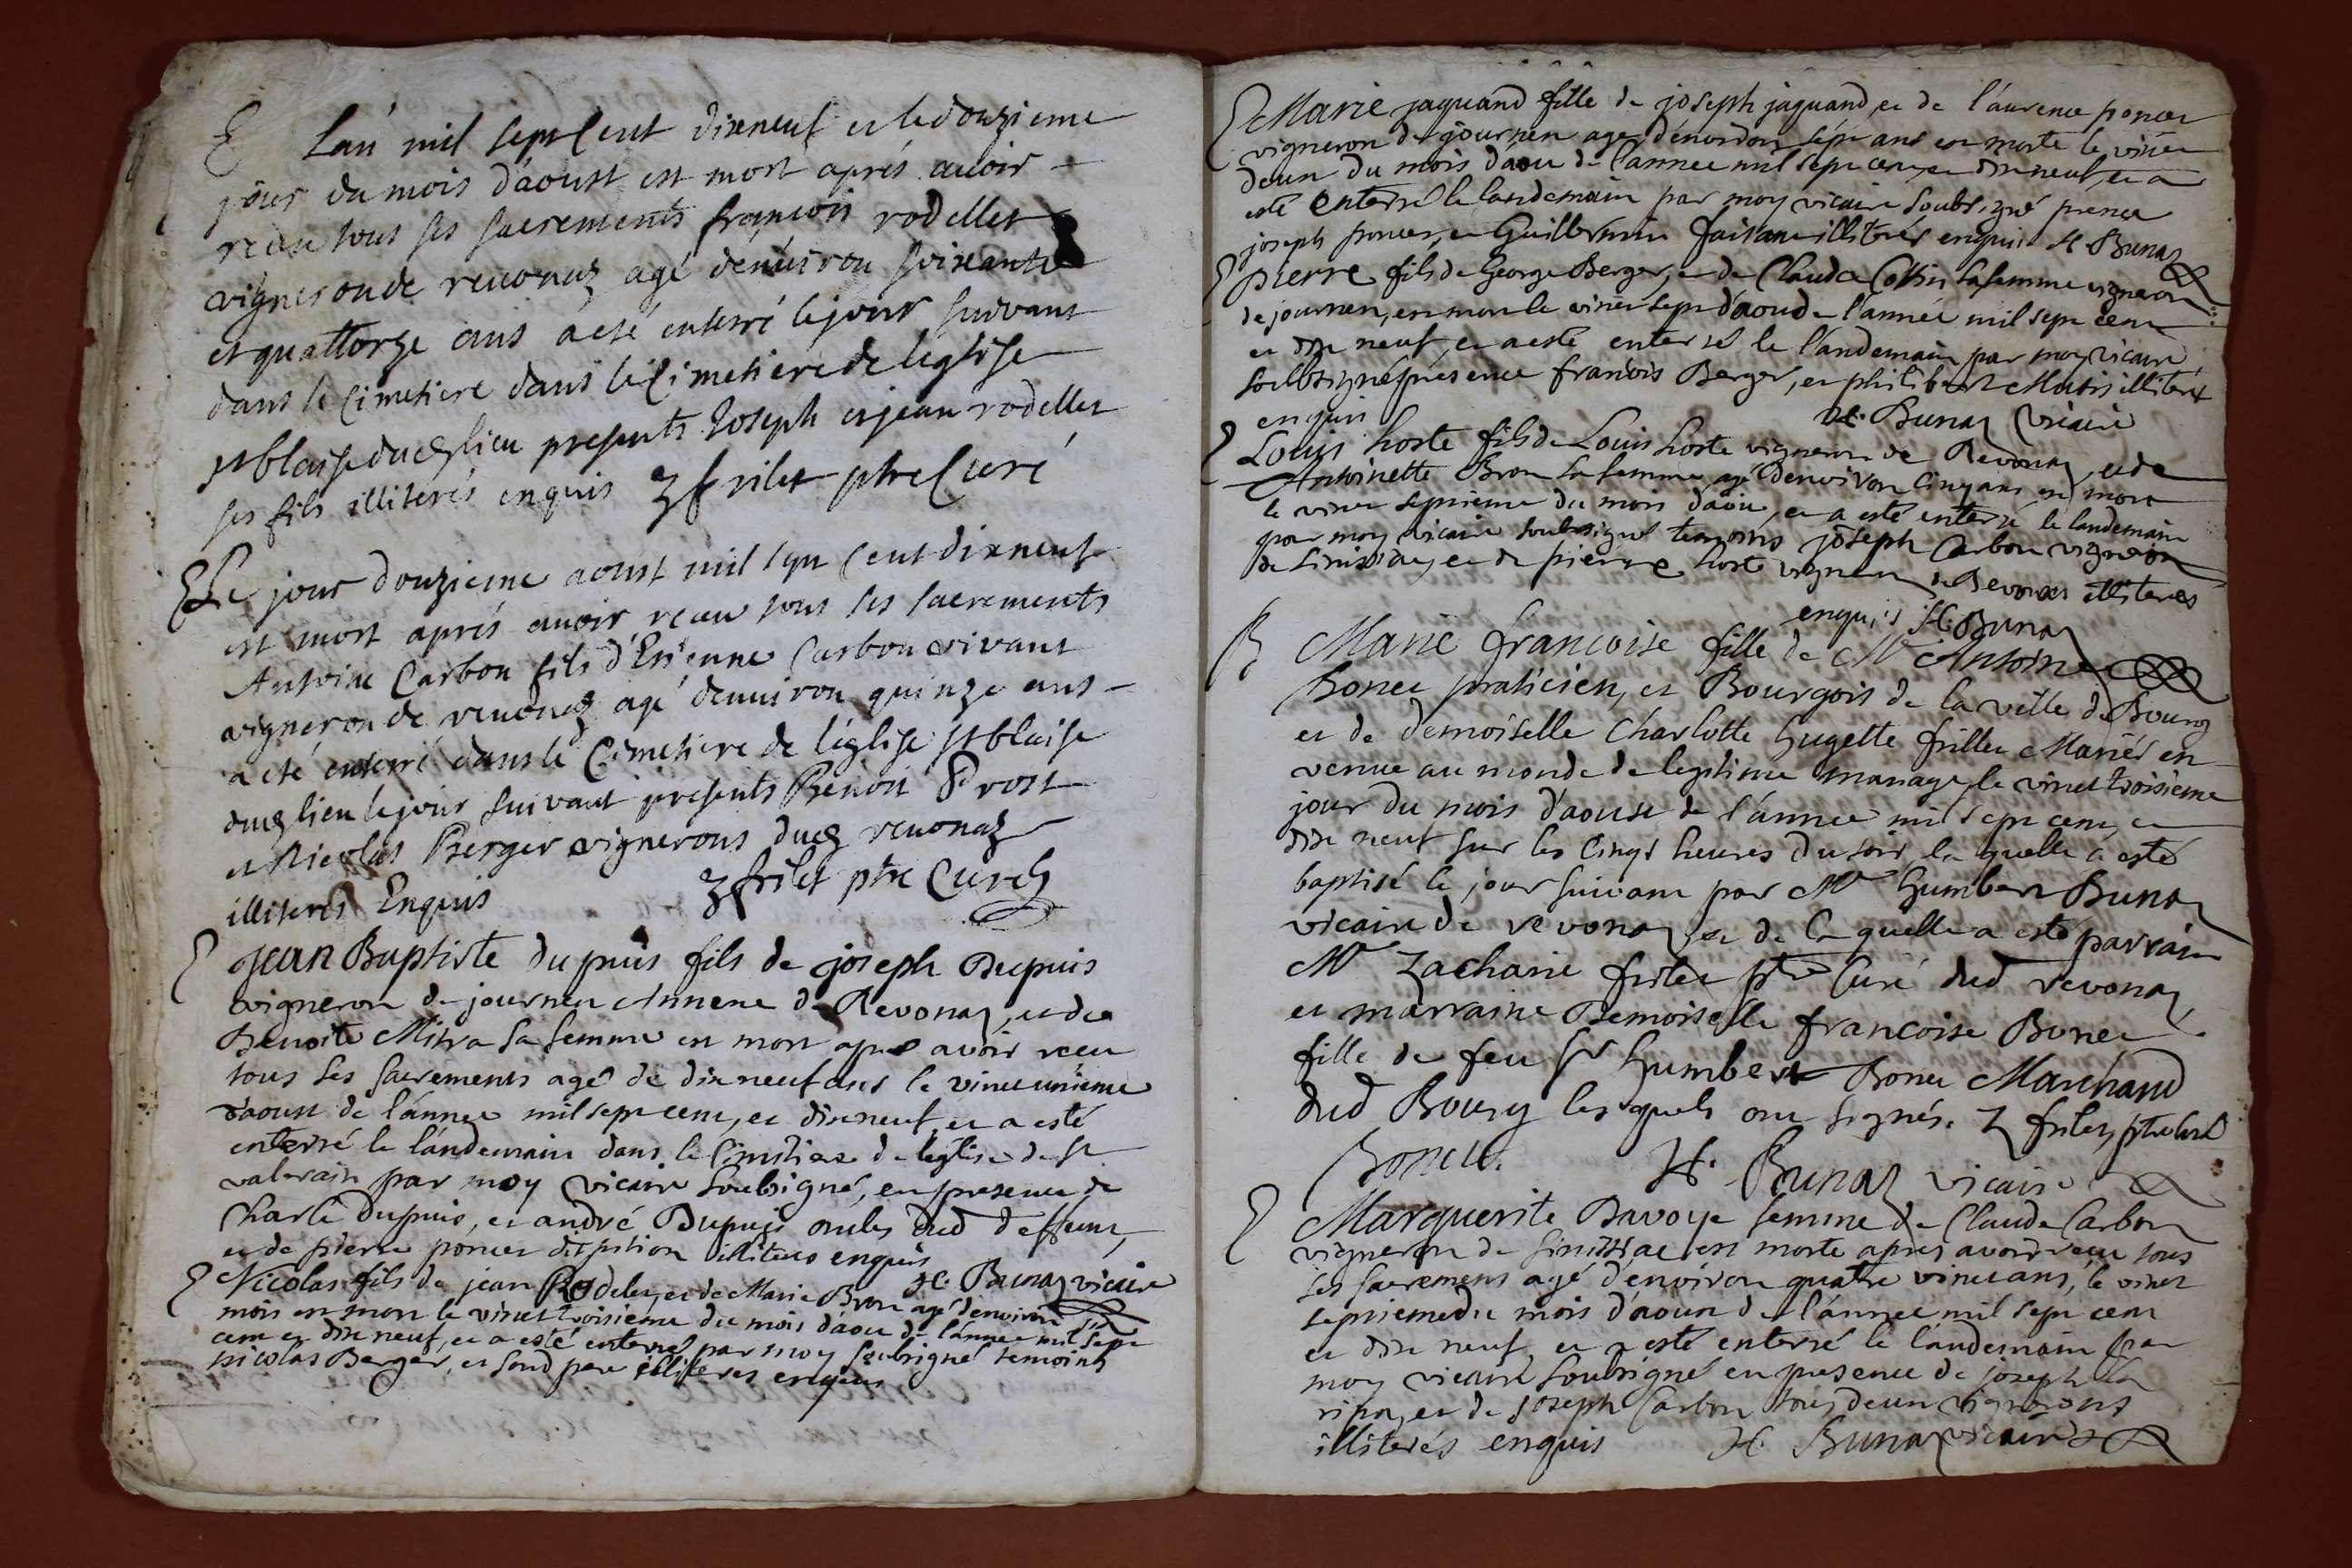 E Lan mil sept Cent dixneuf et le douzieme
jour du mois d'aoust est mort aprés avoir
receu tous ses sacrements françois rodellet
vigneron de revonaz agé d'environ soixante
et quattorze ans a eté enterré le jour suivant
dans le Cimetiere dans le Cimetiere de l'eglise
st blaise dud lieu presents Joseph et jean rodellet
ses fils illiterés enquis Z frilet ptre Curé
E Le jour douzieme aoust mil sept Cent dixneuf
est mort aprés avoir receu tous ses sacrements
Antoine Carbon fils d'Etienne Carbon vivant
vigneron de revonaz agé d'environ quinze ans
a eté enterré dans le Cimetiere de l'eglise st blaise
dud lieu le jour suivant presents Benoit Prost
et Nicolas Berger vignerons dud revonaz
illiterés Enquis Z frilet ptre Curé
E Jean Baptiste dupuis fils de joseph Dupuis
vigneron de journen Annexe de Revonaz, et de
Benoite Mitra sa femme est mort apres avoir receu
tous ses sacrements agé de dixneuf ans le vinct unieme
d'aoust de l'année mil sept cent, et dixneuf et a esté
enterré le landemain dans le Cimitiere de l'eglise de st
valerain par moy vicaire soubsigné, en presence de
Charle Dupuis, et andré Dupuis oncles dud deffunt,
et de pierre poncet illiteres enquis
H. Bunaz vicaire
E Nicolas fils de jean Rodelet, et de Marie Bron agé d'environ six
mois est mort le vinct troisieme du mois d'aou de l'année mil sept
cent et dix neuf, et a esté enterré par moy soubsigné temoins
nicolas Berger, et sond pere illiteres enquis
E Marie jaquand fille de joseph jaquand, et de l'aurence poncet
vigneron de journen agee d'environ sept ans est morte le vinct
deux du mois d'aou de l'annee mil sept cent et dix neuf, et a
esté enterré le landemain par moy vicaire soubsigné presence
joseph poncet, et Guillermin illiterés enquis H Bunaz
E Pierre fils de George Berger, et de Clauda Cottin sa femme vigneron
de journen, est mort le vinct sept d'aou de l'année mil sept cent
et dix neuf, et a esté enterré le l'andemain par moy vicaire
soubsigné presence francois Berger, et philibert Mutin illiterés
enquis H. Bunaz vicaire
E Louis hoste fils de Louis hoste vigneron de Revonaz, et de
Antoinette Bron sa femme agé d'environ Cinq ans est mort
le vinct septieme du mois d'aou, et a esté enterré le landemain
par moy vicaire soubsigné temoins joseph Carbon vigneron
de Sinissiay et de pierre hoste vigneron de Revonas illiteres
enquis H. Bunaz
B Marie francoise fille de Mr Antoine
Bonet praticien, et Bourgois de la ville de Bourg
et de demoiselle Charlotte hugette frillet Mariés en
venue au monde de legitime mariage, le vinct troisieme
jour du mois d'aoust de l'année mil sept cent, et
dix neuf sur les Cinqs heures du soir, la quelle a esté
baptisé le jour suivant par Mr humbert Bunaz
vicaire de revonaz, et de la quelle a esté parrain
Mr Zacharie frilet ptre Curé dud revonaz,
et marraine Demoiselle francoise Bonet
fille de feu sr humbert Bonet Marchand
dud Bourg les quels ont signés. Z frilet ptre Curé
Bonet. H. Bunaz vicaire
E Marguerite Davoye femme de Claude Carbon
vigneron de Sinissiac est morte apres avoir receu tous
ses sacremens agé d'environ quatre vinct ans, le vinct
septieme du mois d'aoust de l'année mil sept cent
et dix neuf et a esté enterré le landemain par
moy vicaire soubsigné en presence de joseph la
ripaz, et de joseph Carbon tous deux vignerons
illiterés enquis H. Bunaz vicaire